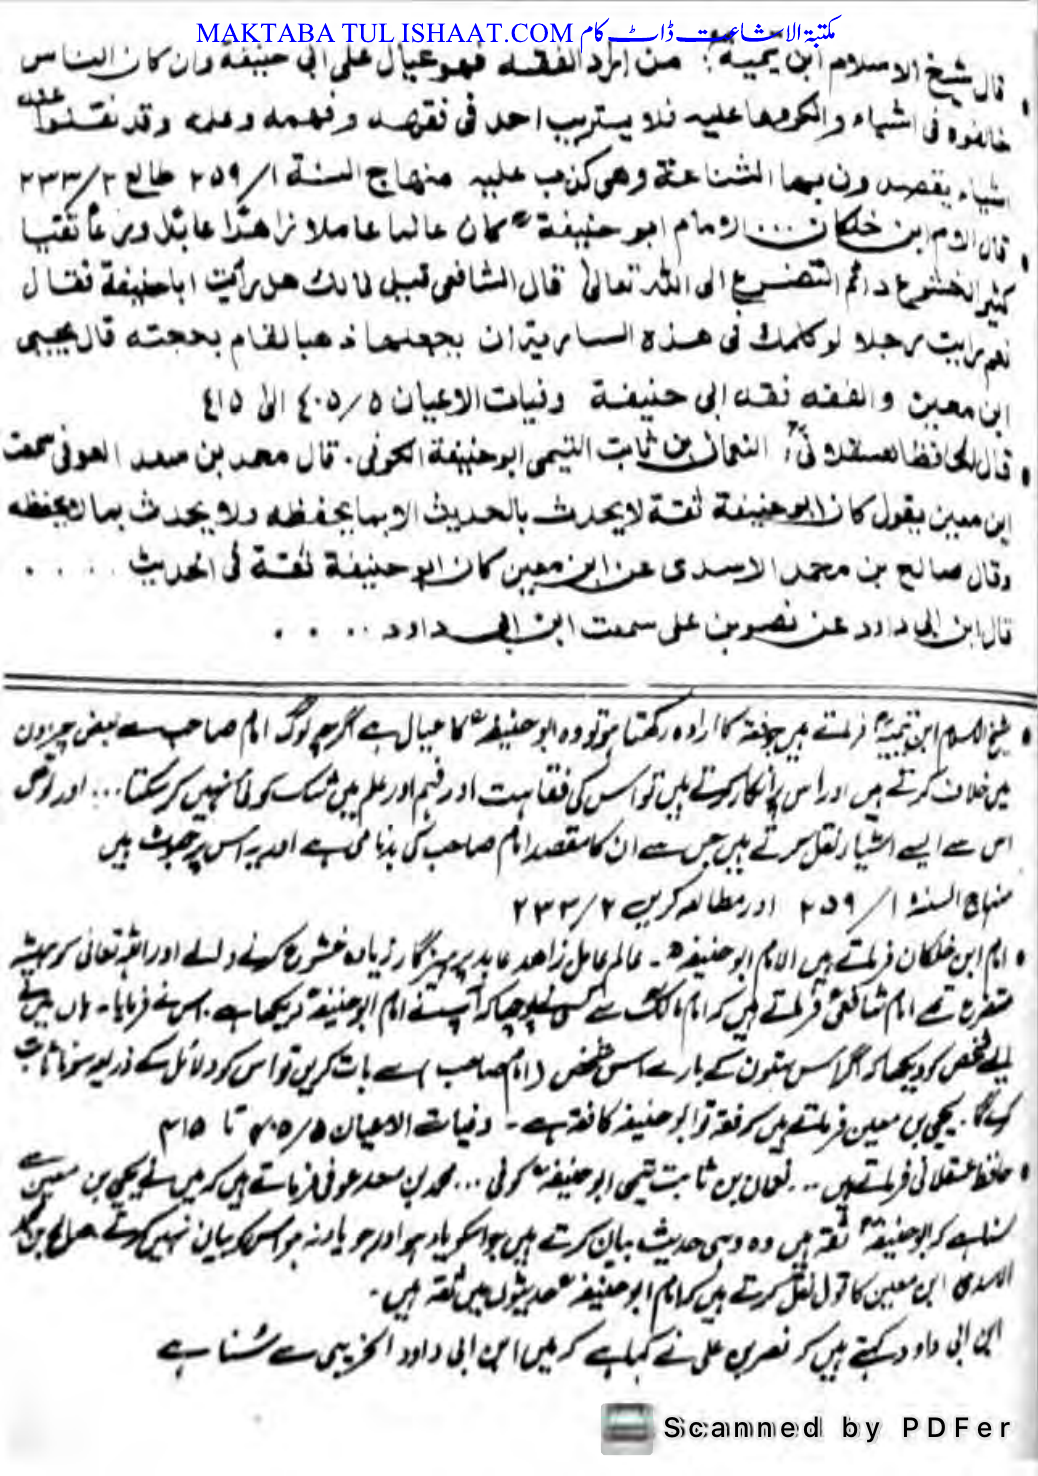 MAKTABA TUL ISHAAT.COM مکتبۃ الاشاعت ڈاٹ کام
قال شیخ الاسلام ابن تیمیہؒ: من اراد الفقه فهو عیال علی ابی حنیفة وان کان الناس
خالفوه فی اشیاء وانکروها علیه فلا یستریب احد فی فقهه وفهمه وعلمه وقد نقلوا عنه
اشیاء یقصدون بها الشناعة وهی کذب علیه منهاج السنة ۱/ ۲۵۹ طالع ۲/ ۲۳۳
قال الامام ابن خلکان ... الامام ابو حنیفةؒ کان عالما عاملا زاهدا عابدا ورعا تقیا
کثیر الخشوع دائم التضرع الی الله تعالیٰ قال الشافعی قیل لمالك هل رأیت اباحنیفة فقال
نعم رایت رجلا لو کلمك فی هذه الساریة ان یجعلها ذهبا لقام بحجته قال یحییٰ
ابن معین والفقه فقه ابی حنیفة وفیات الاعیان ۵/ ٤۰۵ الیٰ ٤۱۵
قال الحافظ العسقلانیؒ: النعمان بن ثابت التیمی ابو حنیفة الکوفی. قال محمد بن سعد العوفی سمعت
ابن معین یقول کان ابو حنیفة ثقة لا یحدث بالحدیث الا بما یحفظه ولا یحدث بما لا یحفظه
وقال صالح بن محمد الاسدی عن ابن معین کان ابو حنیفة ثقة فی الحدیث ....
قال ابن ابی داود عن نصر بن علی سمعت ابن ابی داود ....
شیخ الاسلام ابن تیمیہؒ فرماتے ہیں جو فقہ کا ارادہ رکھتا ہو تو وہ ابو حنیفہؒ کا عیال ہے اگرچہ لوگ امام صاحب سے بعض چیزوں
میں خلاف کرتے ہیں اور اس پر انکار کرتے ہیں تو اس کی فقاہت اور فہم اور علم میں شک کوئی نہیں کر سکتا... اور لوگ
اس سے ایسے اشیاء نقل کرتے ہیں جس سے ان کا مقصد امام صاحب کی بدنامی ہے اور یہ اس پر جھوٹ ہیں
منہاج السنۃ ۱/ ۲۵۹ اور مطالعہ کریں ۲/ ۲۳۳
امام ابن خلکان فرماتے ہیں الامام ابو حنیفہؒ۔ عالم عامل زاهد عابد پرہیزگار زیادہ خشوع کرنے والے اور اللہ تعالیٰ کو ہمیشہ
تھے امام شافعیؒ فرماتے ہیں کہ امام مالکؒ سے کسی نے پوچھا کہ آپ نے امام ابو حنیفہؒ کو دیکھا ہے۔ اس نے فرمایا۔ ہاں میں نے
ایسے شخص کو دیکھا کہ اگر اس ستون کے بارے اس شخص (امام صاحب) سے بات کریں تو اس کو دلائل کے ذریعہ سونا ثابت
کرے گا۔ یحییٰ بن معین فرماتے ہیں کہ فقہ تو ابو حنیفہ کا فقہ ہے۔ وفیات الاعیان ۵/ ۴۰۵ تا ۴۱۵
حافظ عسقلانی فرماتے ہیں ... نعمان بن ثابت تیمی ابو حنیفہؒ کوفی ... محمد بن سعد عوفی فرماتے ہیں کہ میں نے یحییٰ بن معین سے
سنا ہے کہ ابو حنیفہؒ ثقہ ہیں وہ وہی حدیث بیان کرتے ہیں جو اسکو یاد ہو اور جو یاد نہ ہو اس کو بیان نہیں کرتے صالح بن محمد
الاسدی ابن معین کا قول نقل کرتے ہیں کہ امام ابو حنیفہؒ حدیثوں میں ثقہ ہیں۔
ابن ابی داود کہتے ہیں کہ نصر بن علی نے کہا ہے کہ میں ابن ابی داود الخریبی سے سُنا ہے
Scanned by PDFer